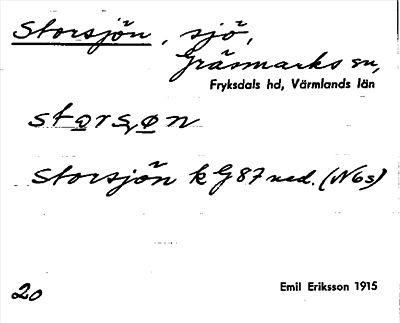 Storsjön, sjö,
Gräsmarks sn,
Fryksdals hd, Värmlands län
storsøn
Storsjön k G 87 ned. (N6s)
20
Emil Eriksson 1915